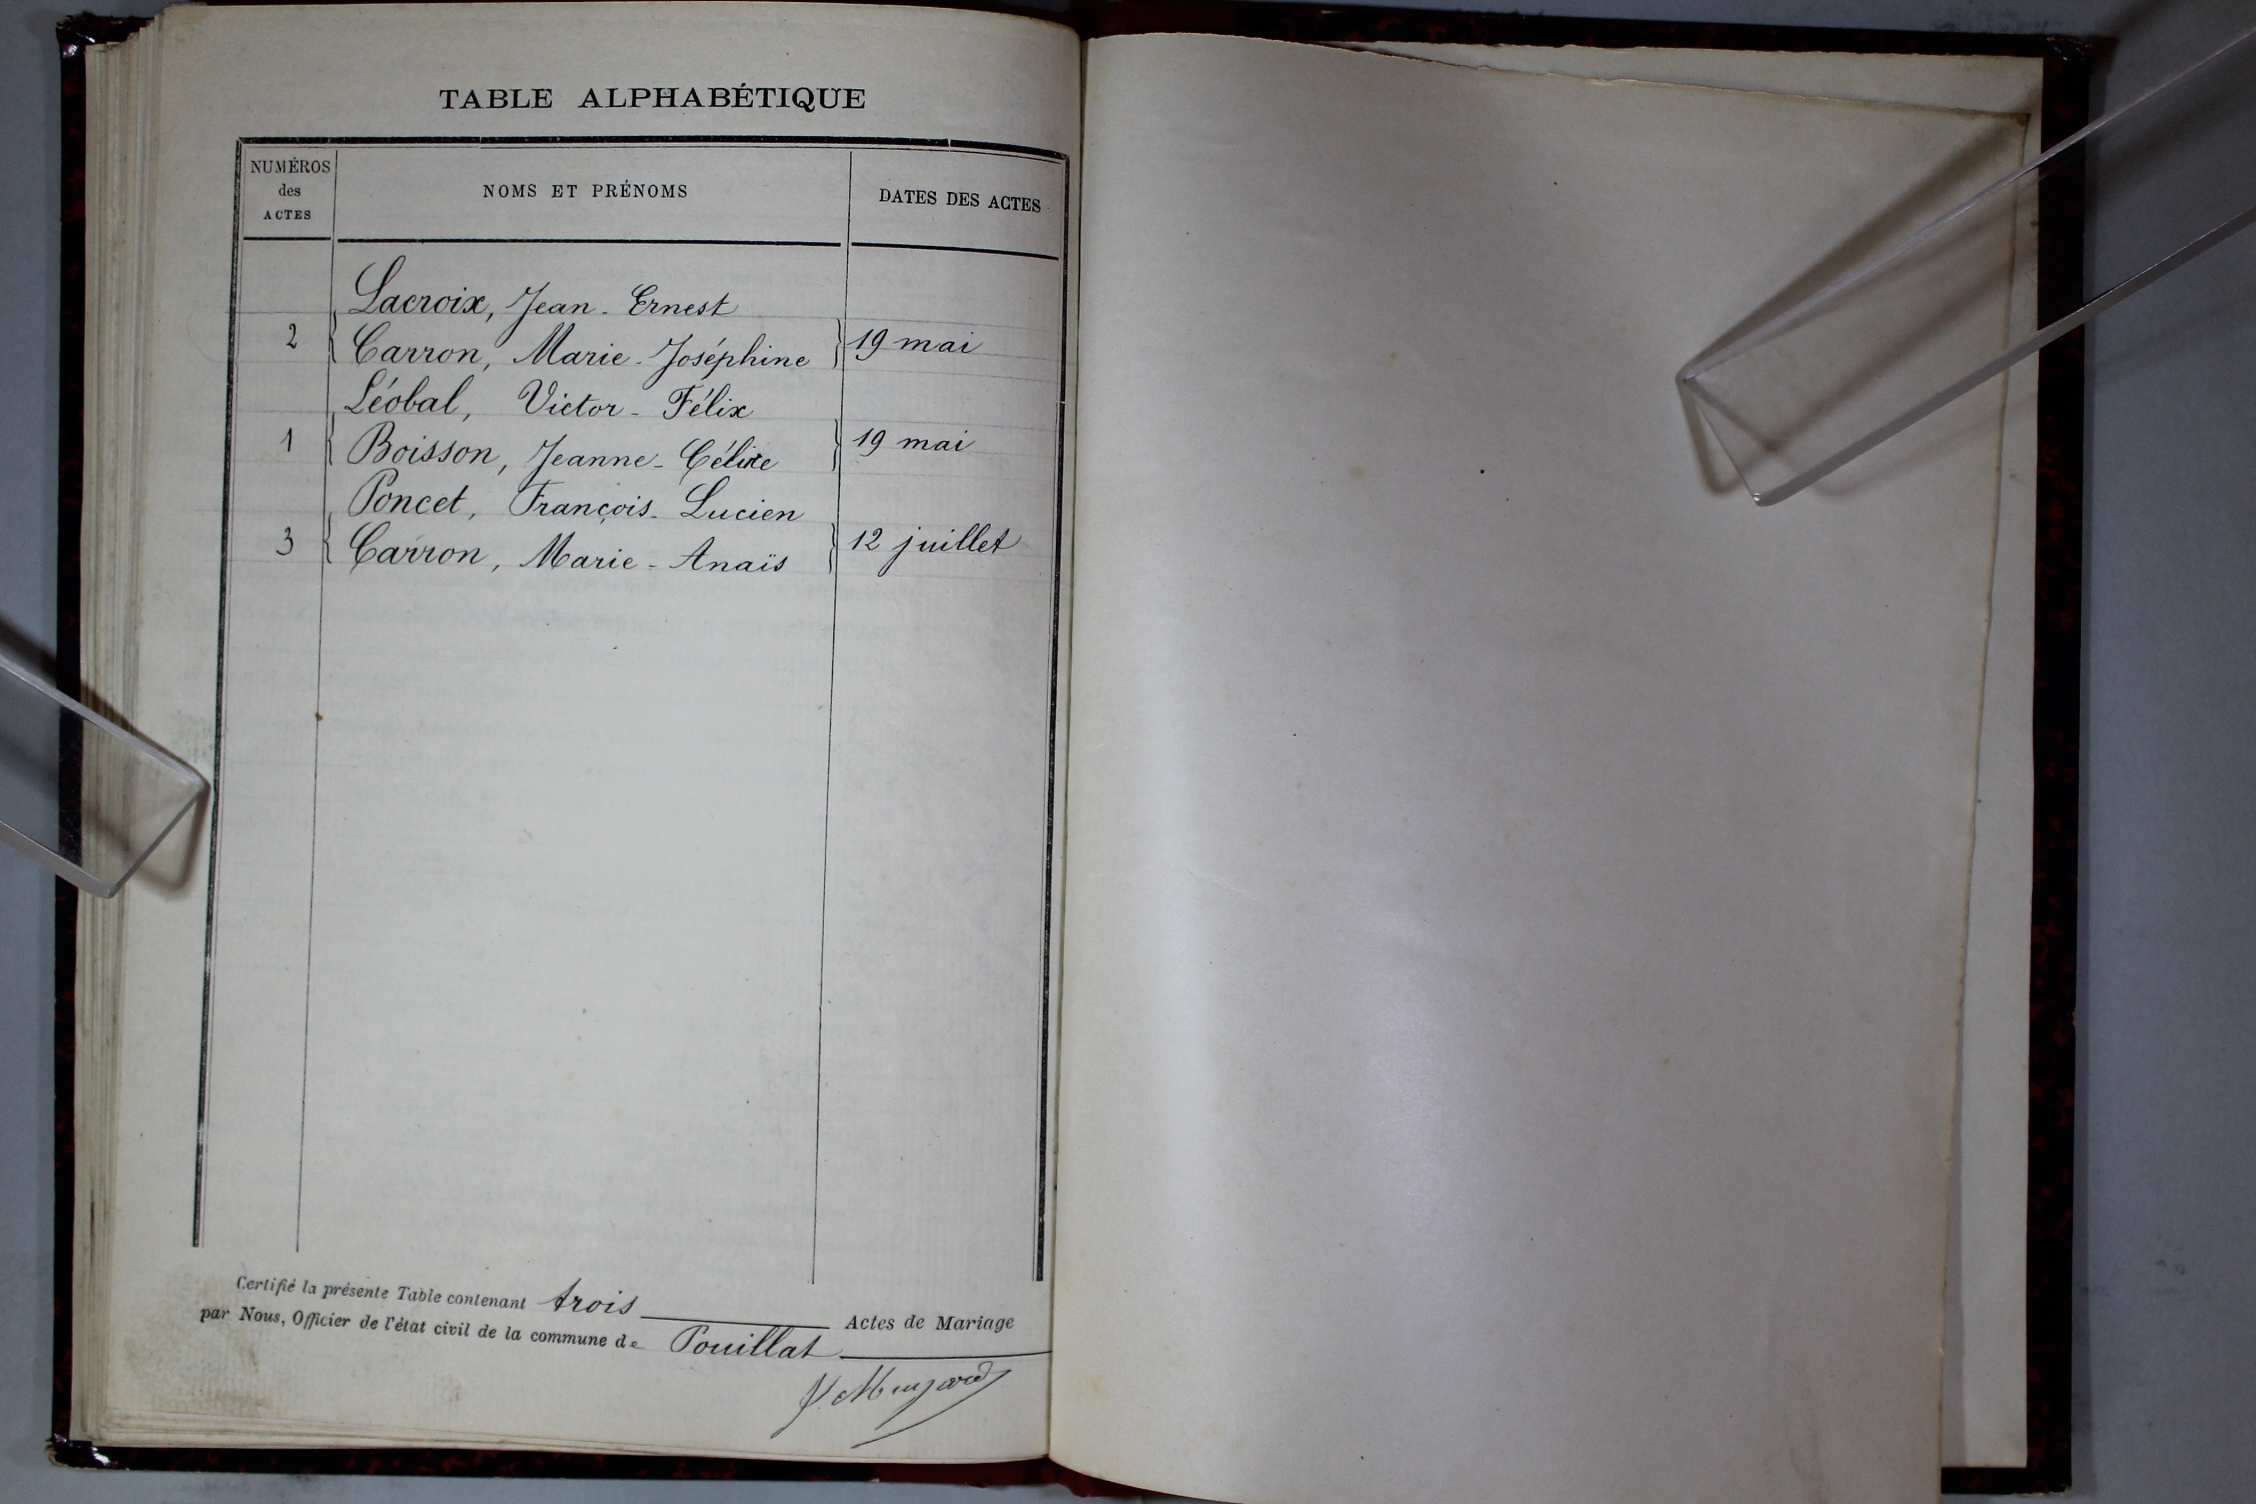 TABLE ALPHABÉTIQUE
NUMÉROS
des
ACTES
NOMS ET PRÉNOMS
DATES DES ACTES
Lacroix, Jean - Ernest
2 { Carron, Marie - Joséphine } 19 mai
Léobal, Victor - Félix
1 { Boisson, Jeanne - Céline } 19 mai
Poncet, François - Lucien
3 { Carron, Marie - Anaïs } 12 juillet
Certifié la présente Table contenant trois Actes de Mariage
par Nous, Officier de l'état civil de la commune de Pouillat